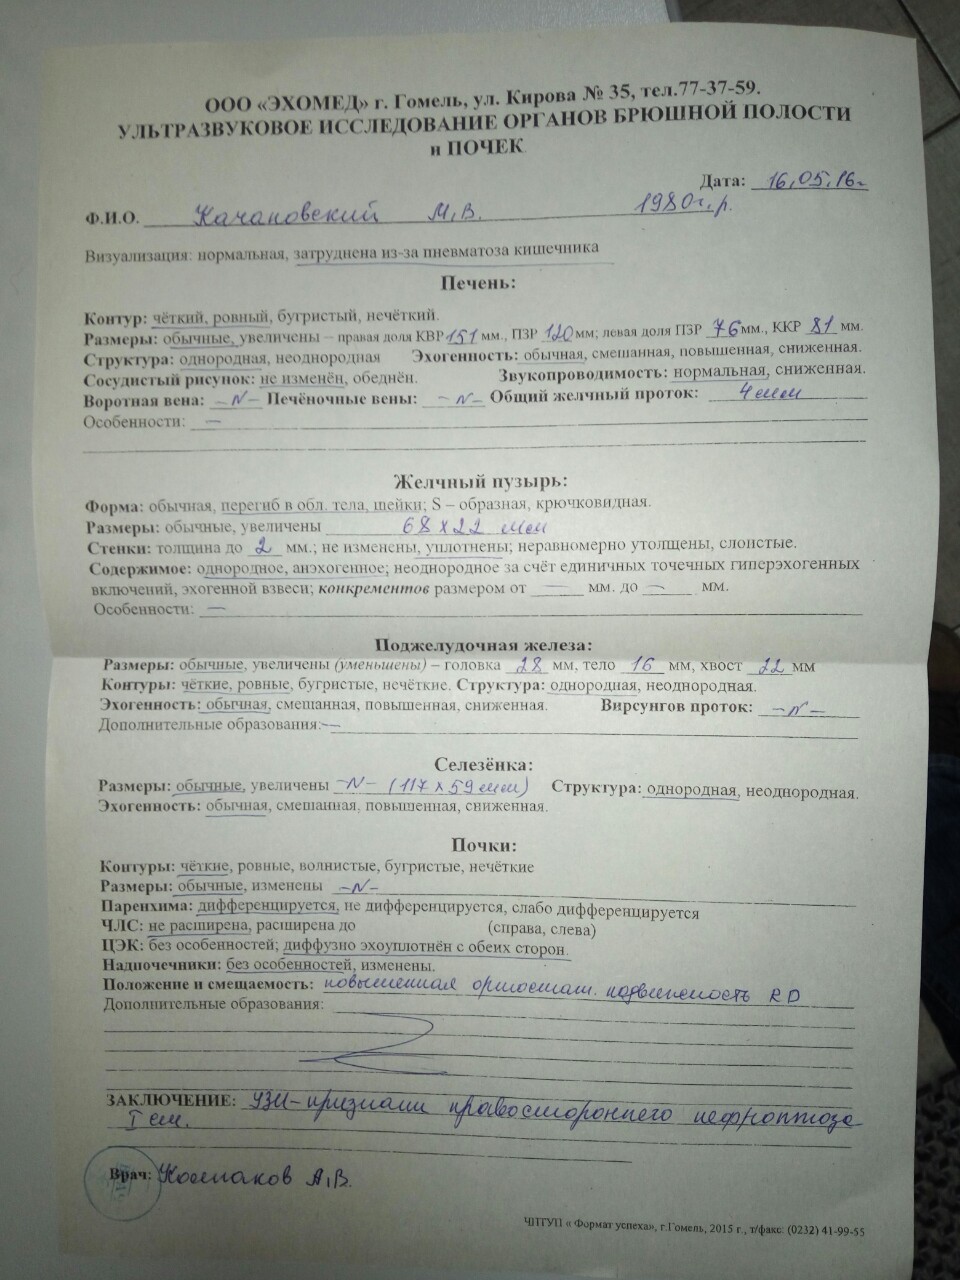 ООО «ЭХОМЕД» г. Гомель, ул. Кирова № 35, тел.77-37-59.
УЛЬТРАЗВУКОВОЕ ИССЛЕДОВАНИЕ ОРГАНОВ БРЮШНОЙ ПОЛОСТИ
и ПОЧЕК
Дата: 16.05.16г
Ф.И.О. Качановский М.В. 1980г.р.
Визуализация: нормальная, затруднена из-за пневматоза кишечника
Печень:
Контур: чёткий, ровный, бугристый, нечёткий.
Размеры: обычные, увеличены – правая доля КВР 151 мм., ПЗР 120 мм; левая доля ПЗР 76 мм., ККР 81 мм.
Структура: однородная, неоднородная Эхогенность: обычная, смешанная, повышенная, сниженная.
Сосудистый рисунок: не изменён, обеднён. Звукопроводимость: нормальная, сниженная.
Воротная вена: –N– Печёночные вены: –N– Общий желчный проток: 4 мм
Особенности: —
Желчный пузырь:
Форма: обычная, перегиб в обл. тела, шейки; S – образная, крючковидная.
Размеры: обычные, увеличены 68 х 22 мм
Стенки: толщина до 2 мм.; не изменены, уплотнены; неравномерно утолщены, слоистые.
Содержимое: однородное, анэхогенное; неоднородное за счёт единичных точечных гиперэхогенных
включений, эхогенной взвеси; конкрементов размером от — мм. до — мм.
Особенности: —
Поджелудочная железа:
Размеры: обычные, увеличены (уменьшены) – головка 28 мм, тело 16 мм, хвост 22 мм
Контуры: чёткие, ровные, бугристые, нечёткие. Структура: однородная, неоднородная.
Эхогенность: обычная, смешанная, повышенная, сниженная. Вирсунгов проток: –N–
Дополнительные образования: —
Селезёнка:
Размеры: обычные, увеличены –N– (117 х 59 мм) Структура: однородная, неоднородная.
Эхогенность: обычная, смешанная, повышенная, сниженная.
Почки:
Контуры: чёткие, ровные, волнистые, бугристые, нечёткие
Размеры: обычные, изменены –N–
Паренхима: дифференцируется, не дифференцируется, слабо дифференцируется
ЧЛС: не расширена, расширена до (справа, слева)
ЦЭК: без особенностей; диффузно эхоуплотнён с обеих сторон.
Надпочечники: без особенностей, изменены.
Положение и смещаемость: повышенная ортостат. подвижность RD
Дополнительные образования:
ЗАКЛЮЧЕНИЕ: УЗИ-признаки правостороннего нефроптоза
I ст.
Врач: Колпаков А.В.
ЧПТУП « Формат успеха», г.Гомель, 2015 г., т/факс: (0232) 41-99-55